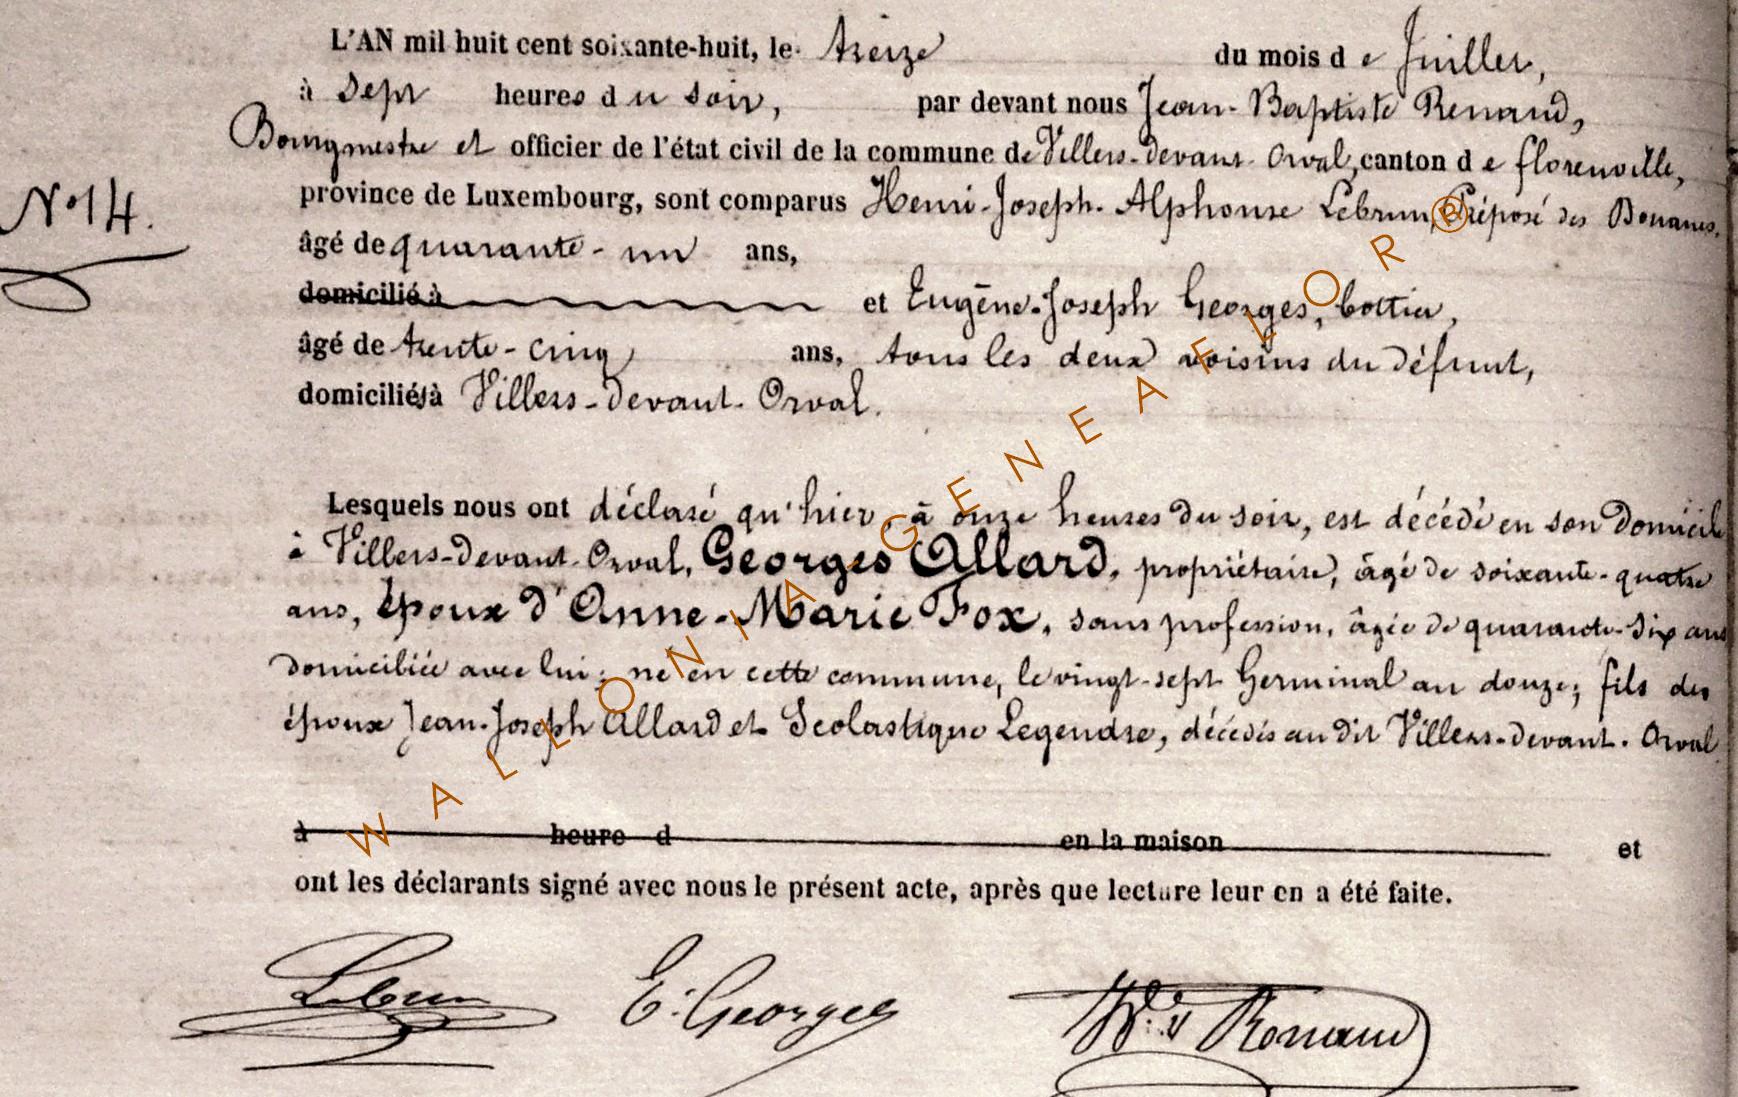 L'AN mil huit cent soixante-huit, le treize du mois de Juillet,
à sept heures du soir, par devant nous Jean-Baptiste Renaud,
Bourgmestre et officier de l'état civil de la commune de Villers-devant-Orval, canton de florenville,
province de Luxembourg, sont comparus Henri-Joseph-Alphonse Lebrun, Préposé des Douanes,
N° 14.
âgé de quarante-un ans,
domicilié à et Eugène-Joseph Georges, Cottier,
âgé de trente-cinq ans, tous les deux voisins du défunt,
domiciliés à Villers-devant-Orval.
Lesquels nous ont déclaré qu'hier, à onze heures du soir, est décédé en son Domicile
à Villers-devant-Orval, Georges Allard, propriétaire, âgé de soixante-quatre
ans, époux d'Anne-Marie Fox, sans profession, âgée de quarante-six ans
domiciliée avec lui; né en cette commune, le vingt-sept Germinal an douze; fils des
époux Jean-Joseph Allard et Scolastique Legendre, décédés au dit Villers-devant-Orval
à heure d en la maison et
ont les déclarants signé avec nous le présent acte, après que lecture leur en a été faite.
Lebrun E. Georges Renaud
WALLONIA GENEAFLOR®